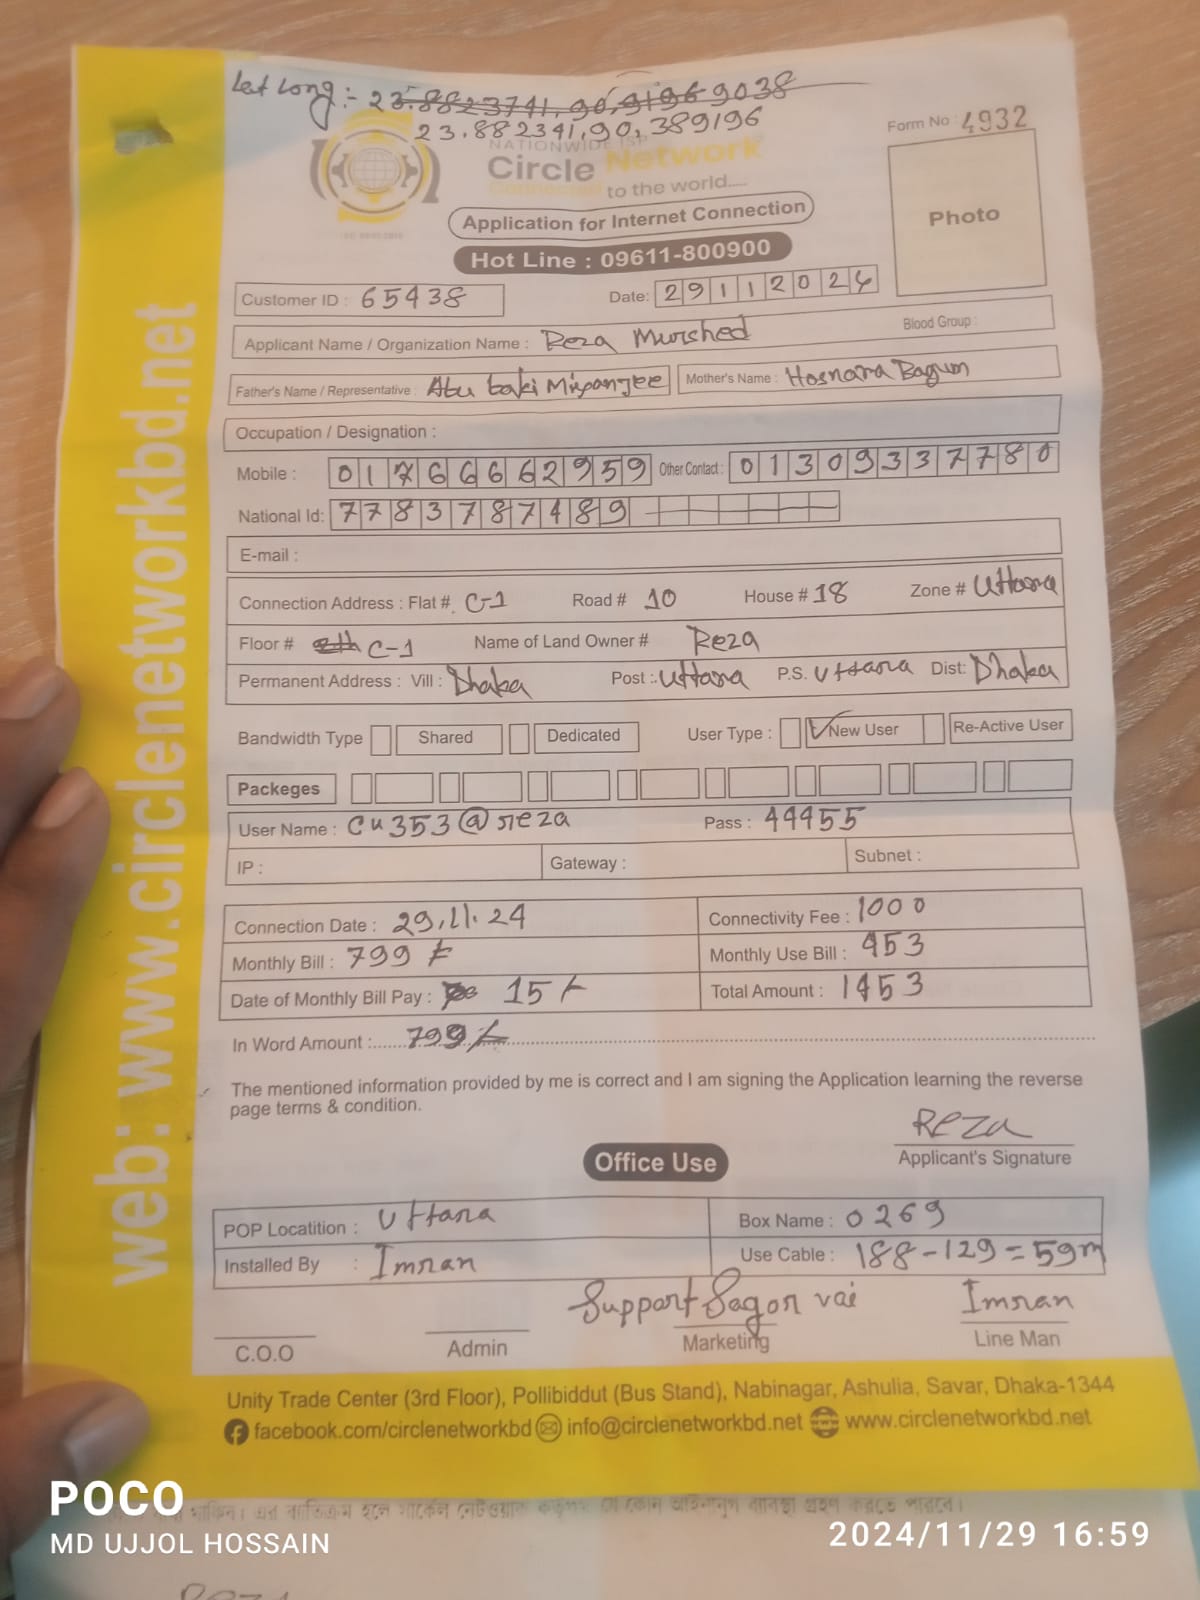 Let Long:- 23.8823741, 90,9196 9038
23.882341,90,389196
Form No : 4932
NATIONWIDE ISP
Circle Network
Connected to the world....
Photo
Application for Internet Connection
Hot Line : 09611-800900
Customer ID : 65438
Date: 29112024
Applicant Name / Organization Name : Reza Murshed
Blood Group :
Father's Name / Representative : Abu baki
Mother's Name : Hosnara Bagum
Occupation / Designation :
Mobile : 01766662959 Other Contact : 01309337780
National Id: 7783787489
E-mail :
Connection Address : Flat #. C-1 Road # 10 House # 18 Zone # Uttara
Floor # C-1 Name of Land Owner # Reza
Permanent Address : Vill : Dhaka Post :- Uttara P.S. Uttara Dist: Dhaka
Bandwidth Type Shared Dedicated User Type : New User Re-Active User
Packeges
User Name : Cu353@reza Pass : 44455
IP : Gateway : Subnet :
Connection Date : 29.11.24 Connectivity Fee : 1000
Monthly Bill : 799 /- Monthly Use Bill : 453
Date of Monthly Bill Pay : 15 /- Total Amount : 1453
In Word Amount :...... 799/-
The mentioned information provided by me is correct and I am signing the Application learning the reverse
page terms & condition.
Reza
Applicant's Signature
Office Use
POP Locatition : Uttara Box Name : 0269
Installed By : Imran Use Cable : 188-129=59m
Support Sagor vai Imran
C.O.O Admin Marketing Line Man
Unity Trade Center (3rd Floor), Pollibiddut (Bus Stand), Nabinagar, Ashulia, Savar, Dhaka-1344
facebook.com/circlenetworkbd info@circlenetworkbd.net www.circlenetworkbd.net
web: www.circlenetworkbd.net
থাকিবে। এর ব্যতিক্রম হলে সার্কেল নেটওয়ার্ক কর্তৃপক্ষ যে কোন আইনানুগ ব্যবস্থা গ্রহণ করতে পারবে।
POCO
MD UJJOL HOSSAIN
2024/11/29 16:59